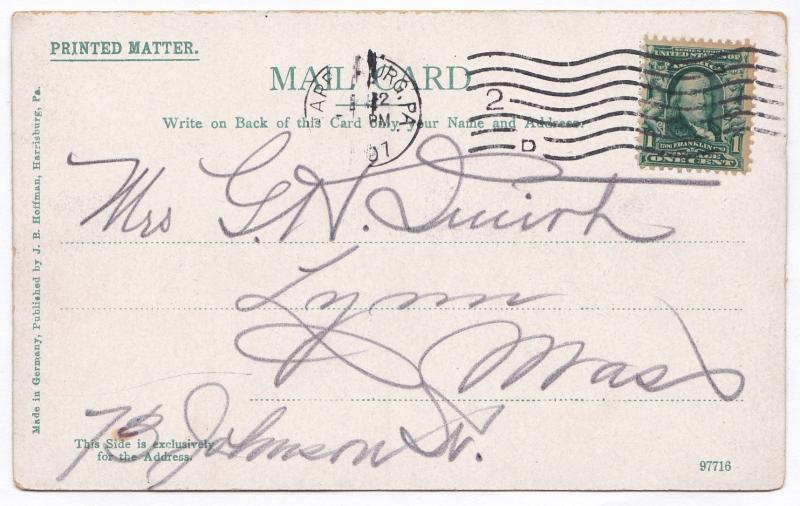 PRINTED MATTER.
MAIL CARD
Write on Back of this Card only your Name and Address.
SERIES 1902
UNITED STATES OF AMERICA
1 FRANKLIN 1
POSTAGE
ONE CENT
PM
07
2
D
Mrs G. H. Smith
Lynn
Mass
73 Johnson St.
This Side is exclusively
for the Address.
97716
Made in Germany, Published by J. B. Hoffman, Harrisburg, Pa.